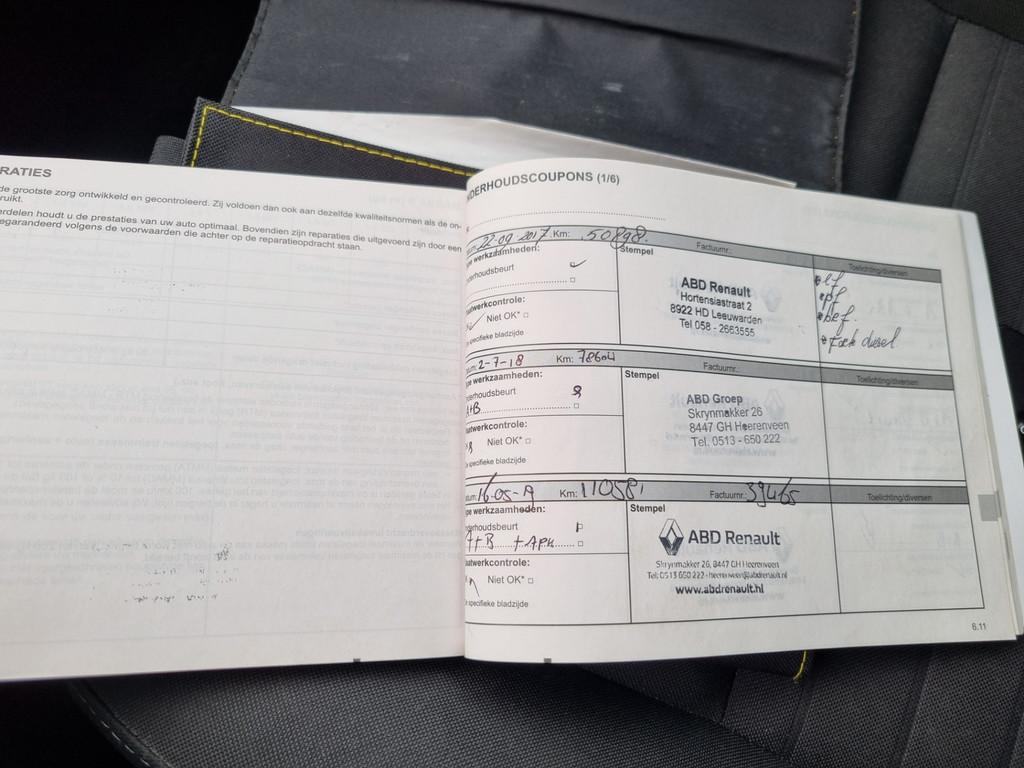 RATIES
de grootste zorg ontwikkeld en gecontroleerd. Zij voldoen dan ook aan dezelfde kwaliteitsnormen als de on-
ruikt.
erdelen houdt u de prestaties van uw auto optimaal. Bovendien zijn reparaties die uitgevoerd zijn door een
egarandeerd volgens de voorwaarden die achter op de reparatieopdracht staan.
NDERHOUDSCOUPONS (1/6)
22-09-2017 Km: 50898. Factuurnr.: Toelichting/diversen
pe werkzaamheden:
nderhoudsbeurt
Stempel
ABD Renault
Hortensiastraat 2
8922 HD Leeuwarden
Tel 058 - 2663555
laatwerkcontrole:
Niet OK*
e specifieke bladzijde
tum: 2-7-18 Km: 78604 Factuurnr.: Toelichting/diversen
pe werkzaamheden:
nderhoudsbeurt
A+B
Stempel
ABD Groep
Skrynmakker 26
8447 GH Heerenveen
Tel. 0513 - 650 222
laatwerkcontrole:
Niet OK*
e specifieke bladzijde
tum: 16-05-19 Km: 110581 Factuurnr.: 39465 Toelichting/diversen
pe werkzaamheden:
nderhoudsbeurt
A+B + APK
Stempel
ABD Renault
Skrynmakker 26, 8447 GH Heerenveen
Tel: 0513 650 222 - heerenveen@abdrenault.nl
www.abdrenault.nl
laatwerkcontrole:
Niet OK*
e specifieke bladzijde
6.11